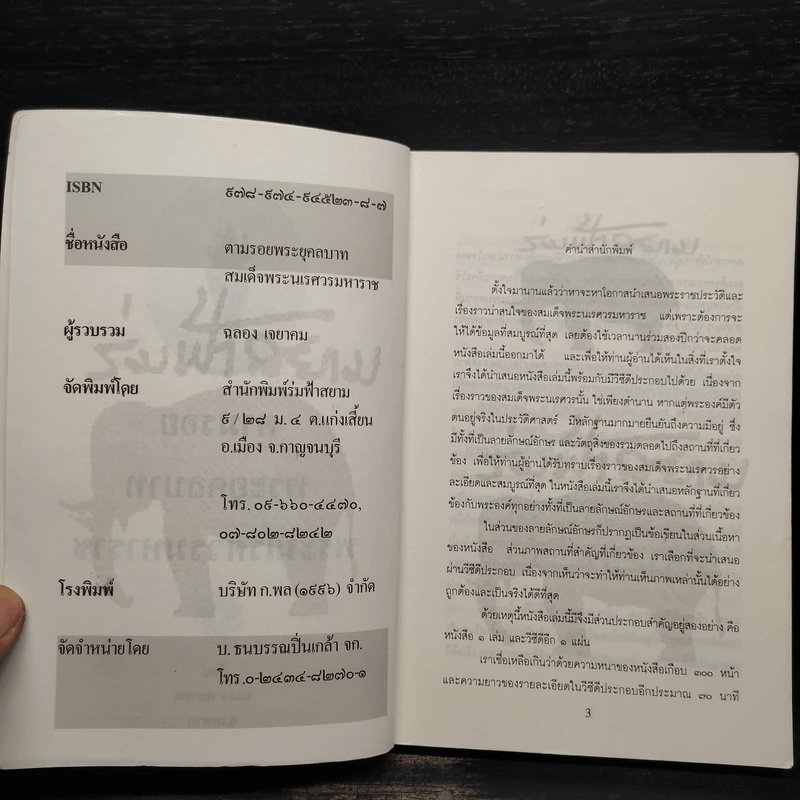 ISBN ๙๗๘-๙๗๔-๙๔๕๒๓-๘-๗
ชื่อหนังสือ ตามรอยพระยุคลบาท
สมเด็จพระนเรศวรมหาราช
ผู้รวบรวม ฉลอง เจยาคม
จัดพิมพ์โดย สำนักพิมพ์ร่มฟ้าสยาม
๙/๒๘ ม.๔ ต.แก่งเสี้ยน
อ.เมือง จ.กาญจนบุรี
โทร.๐๙-๖๖๐-๔๔๗๐,
๐๗-๘๐๒-๘๒๔๒
โรงพิมพ์ บริษัท ก.พล (๑๙๙๖) จำกัด
จัดจำหน่ายโดย บ. ธนบรรณปิ่นเกล้า จก.
โทร.๐-๒๔๓๔-๘๒๗๐-๑
คำนำสำนักพิมพ์
ตั้งใจมานานแล้วว่าหาจะหาโอกาสนำเสนอพระราชประวัติและ
เรื่องราวน่าสนใจของสมเด็จพระนเรศวรมหาราช แต่เพราะต้องการจะ
ให้ได้ข้อมูลที่สมบูรณ์ที่สุด เลยต้องใช้เวลานานร่วมสองปีกว่าจะคลอด
หนังสือเล่มนี้ออกมาได้ และเพื่อให้ท่านผู้อ่านได้เห็นในสิ่งที่เราตั้งใจ
เราจึงได้นำเสนอหนังสือเล่มนี้พร้อมกับมีวีซีดีประกอบไปด้วย เนื่องจาก
เรื่องราวของสมเด็จพระนเรศวรนั้น ใช่เพียงตำนาน หากแต่พระองค์มีตัว
ตนอยู่จริงในประวัติศาสตร์ มีหลักฐานมากมายยืนยันถึงความมีอยู่ ซึ่ง
มีทั้งที่เป็นลายลักษณ์อักษร และวัตถุสิ่งของรวมตลอดไปถึงสถานที่ที่เกี่ยว
ข้อง เพื่อให้ท่านผู้อ่านได้รับทราบเรื่องราวของสมเด็จพระนเรศวรอย่าง
ละเอียดและสมบูรณ์ที่สุด ในหนังสือเล่มนี้เราจึงได้นำเสนอหลักฐานที่เกี่ยว
ข้องกับพระองค์ทุกอย่างทั้งที่เป็นลายลักษณ์อักษรและสถานที่ที่เกี่ยวข้อง
ในส่วนของลายลักษณ์อักษรก็ปรากฏเป็นข้อเขียนในส่วนเนื้อหา
ของหนังสือ ส่วนภาพสถานที่สำคัญที่เกี่ยวข้อง เราเลือกที่จะนำเสนอ
ผ่านวีซีดีประกอบ เนื่องจากเห็นว่าจะทำให้ท่านเห็นภาพเหล่านั้นได้อย่าง
ถูกต้องและเป็นจริงได้ดีที่สุด
ด้วยเหตุนี้หนังสือเล่มนี้มีจึงมีส่วนประกอบสำคัญอยู่สองอย่าง คือ
หนังสือ ๑ เล่ม และวีซีดีอีก ๑ แผ่น
เราเชื่อเหลือเกินว่าด้วยความหนาของหนังสือเกือบ ๓๐๐ หน้า
และความยาวของรายละเอียดในวีซีดีประกอบอีกประมาณ ๗๐ นาที
3